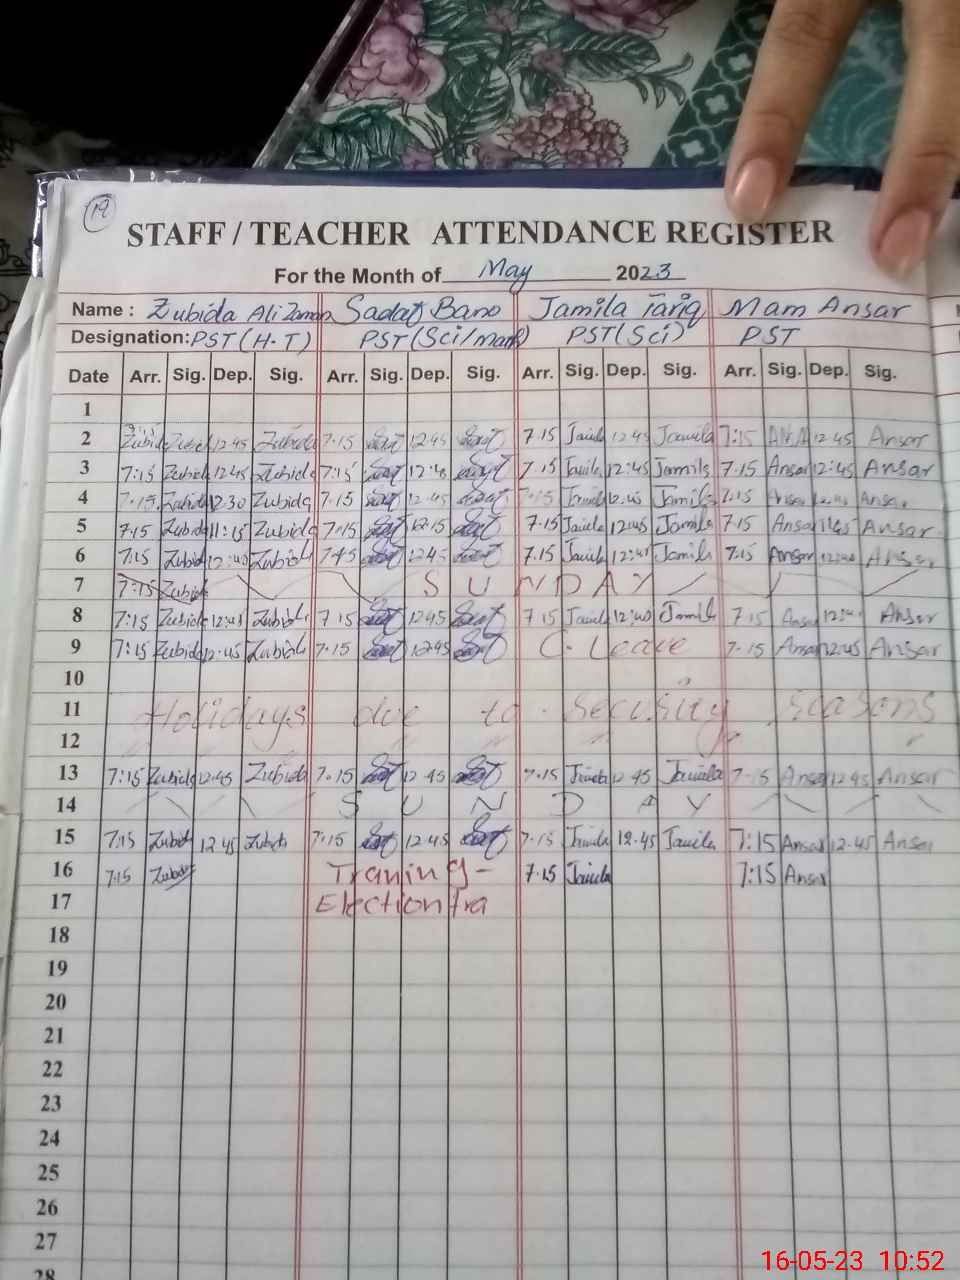 19
STAFF / TEACHER ATTENDANCE REGISTER
For the Month of May 2023
Name : Zubida Ali Zaman Sadaf Bano Jamila Tariq Mam Ansar
Designation: PST (H.T) PST (Sci/math) PST (Sci) PST
Date Arr. Sig. Dep. Sig. Arr. Sig. Dep. Sig. Arr. Sig. Dep. Sig. Arr. Sig. Dep. Sig.
1
2 12 45 Zubida 7.15 12 45 7.15 Jamila 12 45 Jamila 7:15 12.45 Ansar
3 7:15 Zubida 12 45 Zubida 7:15 7.15 Jamila 12:45 Jamila 7.15 Ansar 12:45 Ansar
4 7.15 Zubida 12.30 Zubida 7.15 12.45 Jamila Jamila 7.15 Ansar Ansar
5 7.15 Zubida 11:15 Zubida 7.15 12.15 7.15 Jamila 12:45 Jamila 7.15 Ansar Ansar
6 7:15 Zubida Zubida 7.45 12.45 7.15 Jamila Jamila 7:15 Ansar Ansar
7 7:15 Zubida SUNDAY
8 7:15 Zubida Zubida 7 15 12 45 7 15 Jamila Jamila 7.15 Ansar Ansar
9 7:15 Zubida 12.45 Zubida 7.15 12.45 C. Leave 7.15 Ansar 12.45 Ansar
10
11 Holidays due to security reasons
12
13 7:15 Zubida 12.45 Zubida 7.15 12 45 7.15 Jamila 12.45 Jamila 7.15 Ansar 12 45 Ansar
14 SUNDAY
15 7:15 Zubida 12 45 Zubida 7.15 12.45 7.15 Jamila 12.45 Jamila 7:15 Ansar 12.45 Ansar
16 7.15 Zubida Traning - 7.15 Jamila 7:15 Ansar
17 Election tra
18
19
20
21
22
23
24
25
26
27
28
16-05-23 10:52